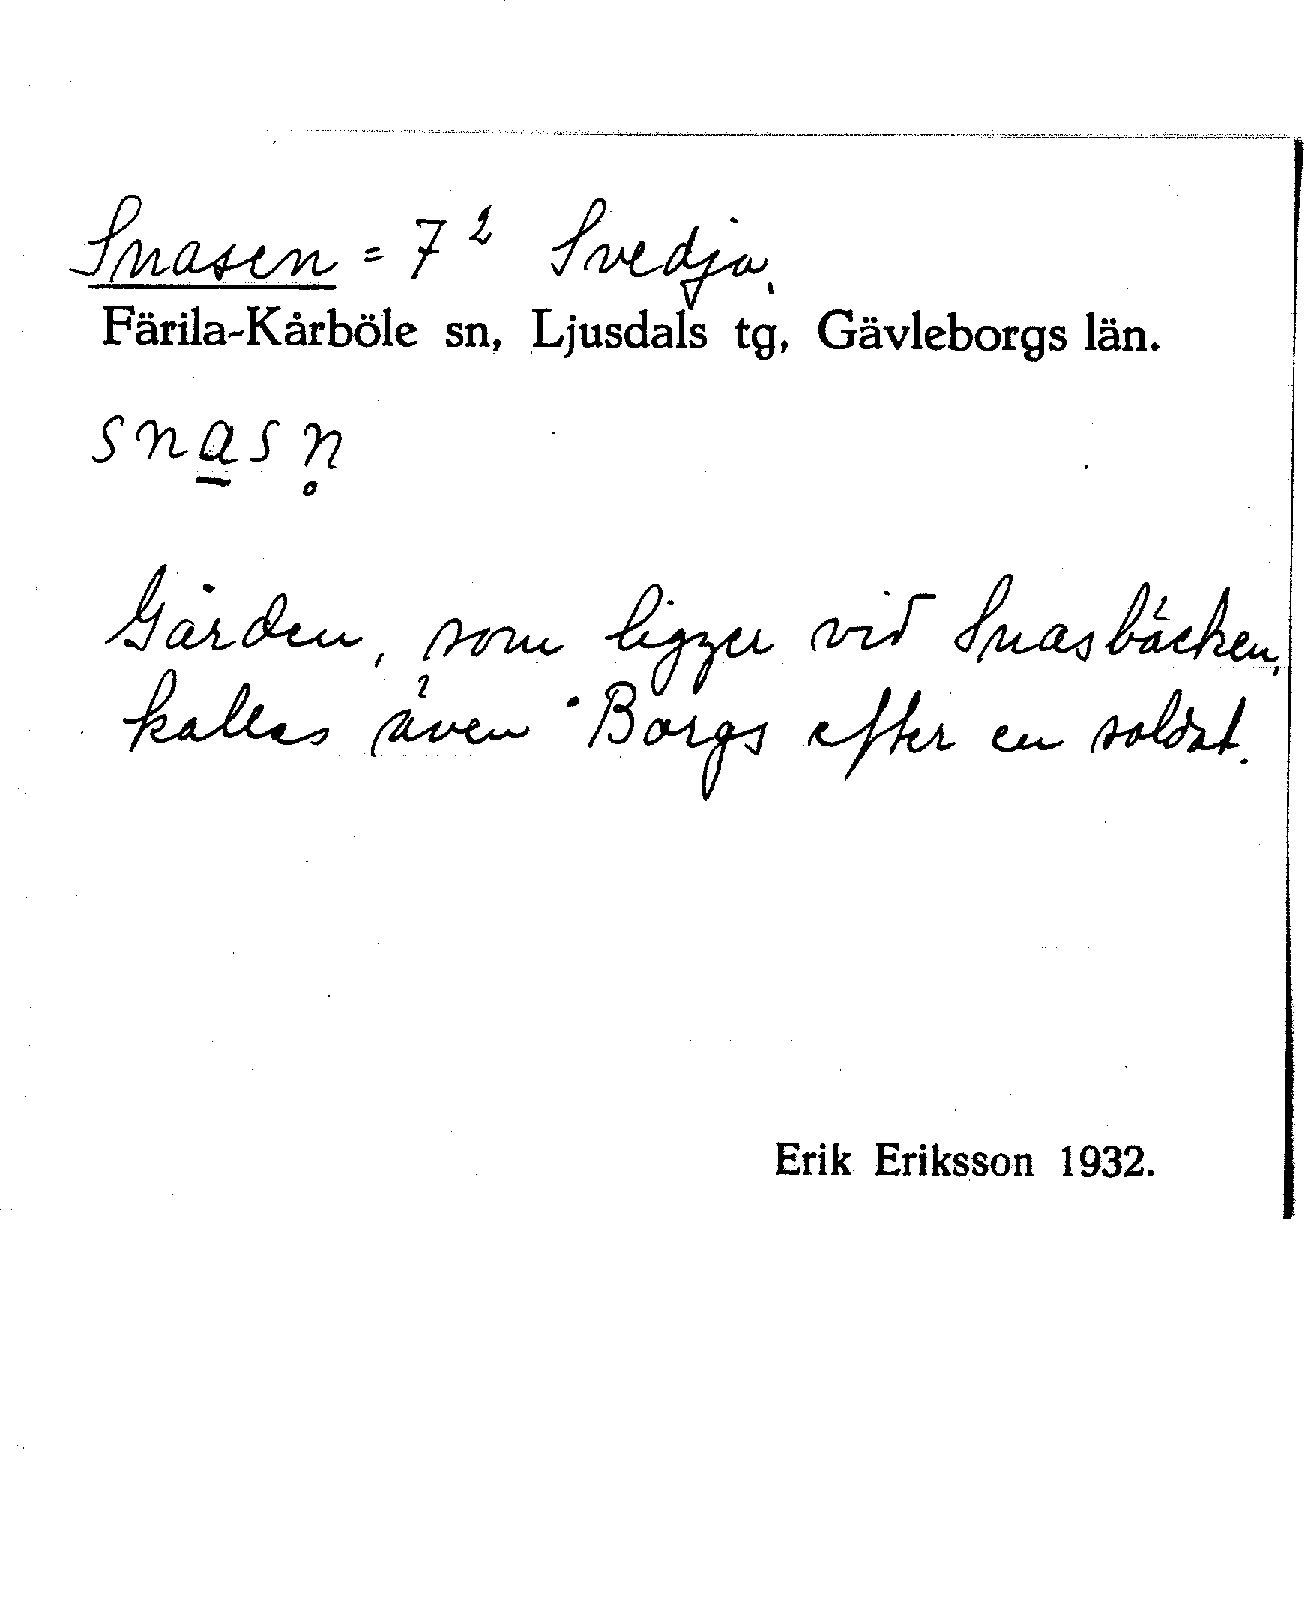 Snasen = 7² Svedja.
Färila-Kårböle sn, Ljusdals tg, Gävleborgs län.
sna̲sn̥
Gården, som ligger vid Snasbäcken,
kallas även Borgs efter en soldat.
Erik Eriksson 1932.